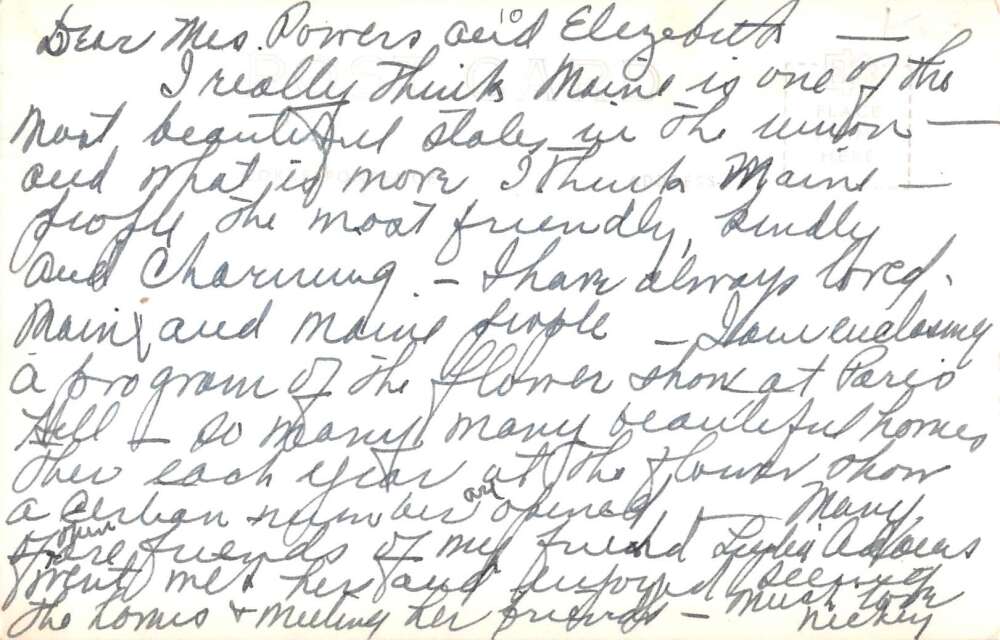 10
Dear Mrs. Powers and Elizabeth —
I really think Maine is one of the
most beautiful states in the union —
and what is more I think Maine —
people the most friendly, kindly
and charming — I have always loved
Maine and Maine people — I am enclosing
a program of the flower show at Paris
Hill — so many, many beautiful homes
there each year at the flower show
a certain number are opened — Many
of friends of my friend Lydia Adams
went me & her and enjoyed seeing
the homes & meeting her friends — much love
Nickey
POST CARD
PLACE
HERE